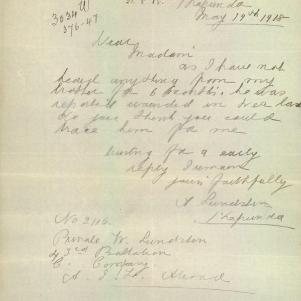 3034 W
376-47
Kapunda
May 19th 1918
Dear
Madam
as I have not
heard anything from my
brother for 6 months, he was
reported wounded in
do you think you could
trace him for me
trusting for a early
reply I remain
yours faithfully
Kapunda
No 2
Private W.
Battalion
C. Company
A. I. F. Abroad